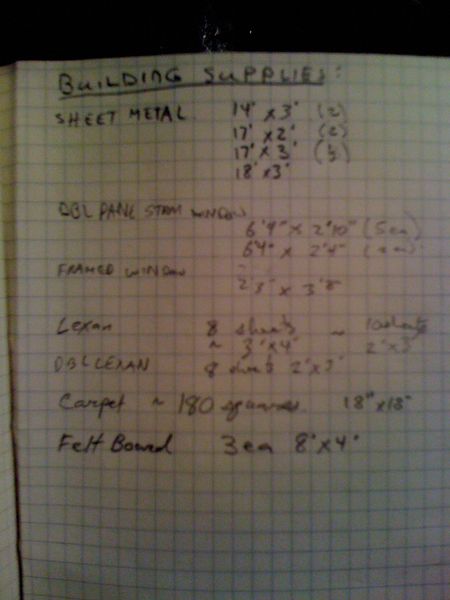 BUILDING SUPPLIES:
SHEET METAL 14' x 3' (2)
17' x 2' (2)
17' x 3'
18' x 3'
DBL PANE STRM WINDOW
6'4" x 2'10" (5ea)
6'4" x 2'4"
FRAMED WINDOW
2'3" x 3'8
Lexan 8 sheets ~ 10 sheets
~ 3' x 4' 2' x 3'
DBL LEXAN 8 sheets 2' x 3'
Carpet ~ 180 squares 18" x 18"
Felt Board 3ea 8' x 4'